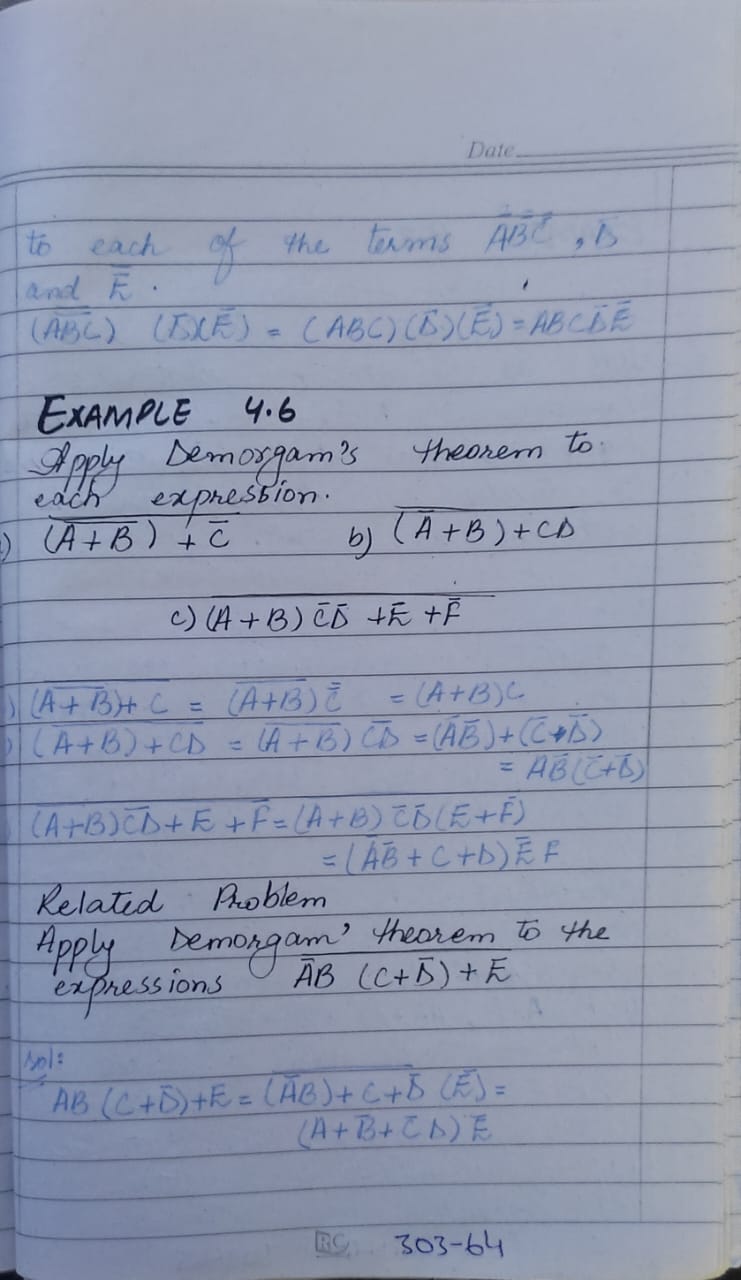 Date
to each of the terms A̅̅B̅̅C̅̅, D̅
and E̅.
(A̅B̅C̅) (D̅)(E̅) = (ABC)(D̅)(E̅) = ABCD̅E̅
EXAMPLE 4.6
Apply Demorgam's theorem to
each expression.
) (A̅+̅B̅) + C̅ b) (A̅+B)+CD
c) (A+B) C̅D̅ +E̅ +F̅
) (A+B)+ C = (A+B) C̿ = (A+B)C
) (A+B)+CD = (A+B) CD = (A̅B̅)+(C̅+D̅)
= AB̅(C̅+D̅)
(A+B)C̅D̅+E+F̅=(A+B) C̅D̅(E̅+F̅)
=(A̅B̅+C+D)E̅F
Related Problem
Apply Demorgam' theorem to the
expressions A̅B (C+D̅)+E̅
sol:
AB (C+D̅)+E = (A̅B)+C+D̅ (E̅)=
(A+B̅+C̅D)E̅
RC 303-64